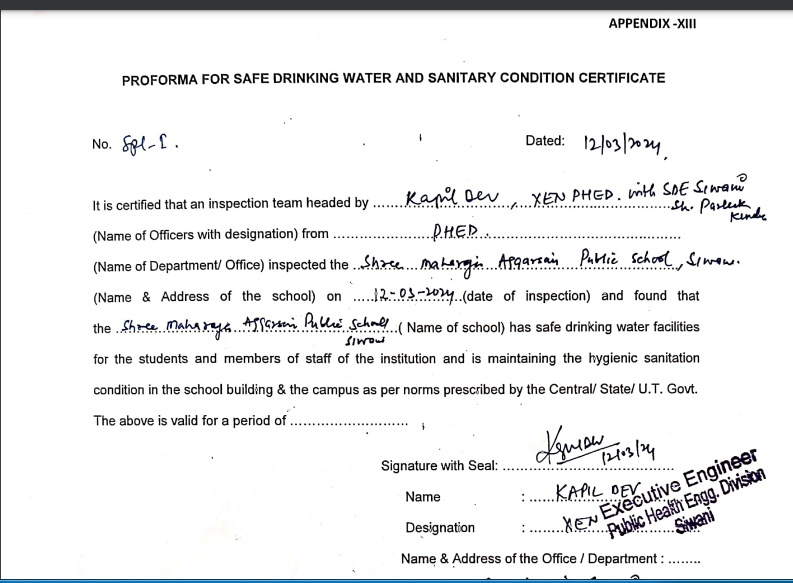 APPENDIX -XIII
PROFORMA FOR SAFE DRINKING WATER AND SANITARY CONDITION CERTIFICATE
No. Spl-I. Dated: 12/03/2024
It is certified that an inspection team headed by Kapil Dev, XEN PHED. with SDE Siwani
Sh.
(Name of Officers with designation) from PHED.
(Name of Department/ Office) inspected the Shree Maharaja Aggarsain Public School, Siwani.
(Name & Address of the school) on 12-03-2024 (date of inspection) and found that
the Shree Maharaja Aggarsain Public School ( Name of school) has safe drinking water facilities
Siwani
for the students and members of staff of the institution and is maintaining the hygienic sanitation
condition in the school building & the campus as per norms prescribed by the Central/ State/ U.T. Govt.
The above is valid for a period of ...........................
Signature with Seal: 12/03/24
Name : KAPIL DEV
Designation : XEN
Executive Engineer
Public Health Engg. Division
Siwani
Name & Address of the Office / Department : ........